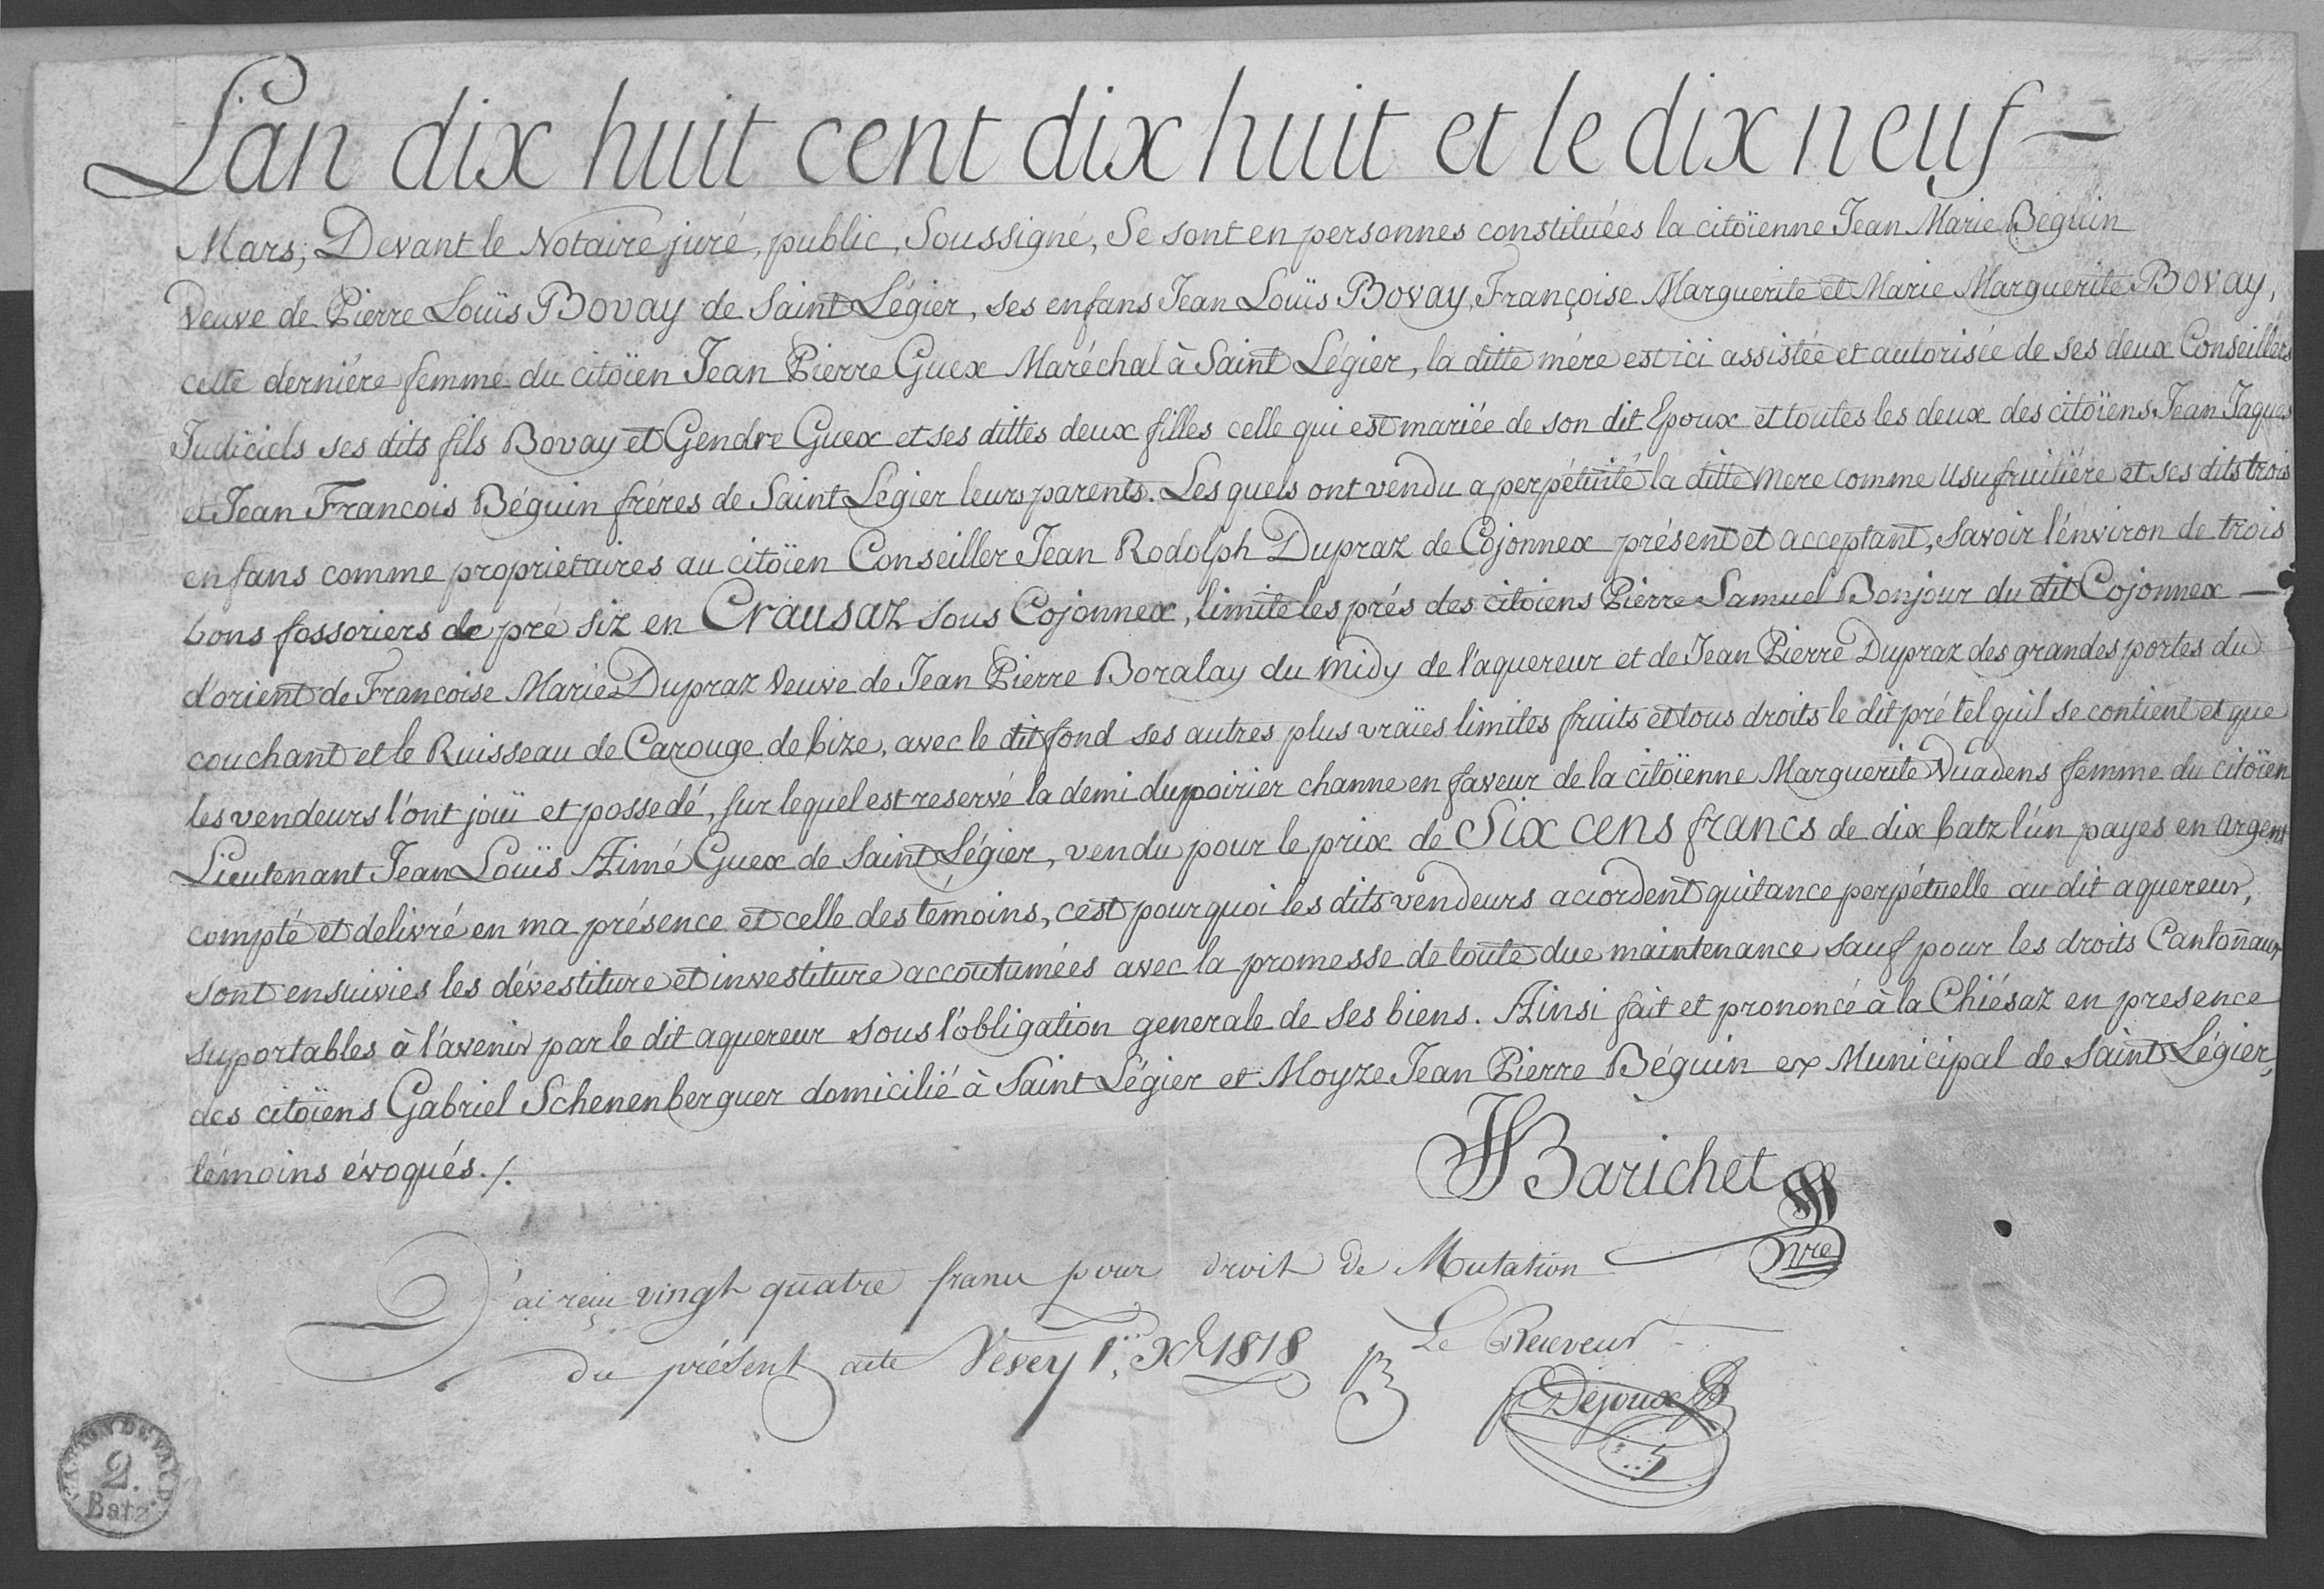 L'an dix huit cent dix huit et le dix neuf —
Mars, Devant le Notaire juré, public, Soussigné, Se sont en personnes constituées la citoïenne Jean Marie Béguin
Veuve de Pierre Louïs Bovay de Saint Légier, ses enfans Jean Louïs Bovay, Françoise Marguerite et Marie Marguerite Bovay,
cette derniére femme du citoïen Jean Pierre Guex Maréchal à Saint Légier, la ditte mére est ici assistée et autorisée de ses deux Conseillers
Judiciels ses dits fils Bovay et Gendre Guex et ses dittes deux filles celle qui est mariée de son dit Epoux et toutes les deux des citoïens Jean Jaques
et Jean Francois Béguin fréres de Saint Légier leurs parents. Les quels ont vendu a perpétuité la ditte mere comme Usufruitiére et ses dits trois
enfans comme proprietaires au citoïen Conseiller Jean Rodolph Dupraz de Cojonnex présent et acceptant, savoir l'énviron de trois
bons fossoriers de pré siz en Crausaz sous Cojonnex, limite les prés des citoiens Pierre Samuel Bonjour du dit Cojonnex —
d'orient de Francoise Marie Dupraz Veuve de Jean Pierre Boralay du midy de l'aquereur et de Jean Pierre Dupraz des grandes portes du
couchant et le Ruisseau de Carouge de bize, avec le dit fond ses autres plus vraïes limites fruits et tous droits le dit pré tel quil se contient et que
les vendeurs l'ont joui et possedé, sur lequel est reservé la demi du poirier channe en faveur de la citoïenne Marguerite Vuadens femme du citoïen
Lieutenant Jean Louïs Aimé Guex de Saint Légier, vendu pour le prix de Six cens francs de dix batz l'un payes en argent
compté et délivré en ma présence et celle des témoins, c'est pourquoi les dits vendeurs acordent quitance perpétuelle au dit aquereur,
sont ensuivies les dévestiture et investiture accoutumées avec la promesse de toute due maintenance sauf pour les droits Cantonaux
suportables à l'avenir par le dit aquereur sous l'obligation generale de ses biens. Ainsi fait et prononcé à la Chiésaz en presence
des citoïens Gabriel Schenenberguer domicilié à Saint Légier et Moyze Jean Pierre Béguin ex Municipal de Saint Légier,
témoins évoqués./.
Barichet
nre
J'ai reçu vingt quatre francs pour droit de Mutation
du présent acte Vevey 1. Xb 1818 Le Receveur
Dejoux
CANTON DE VAUD.
2.
Batz.